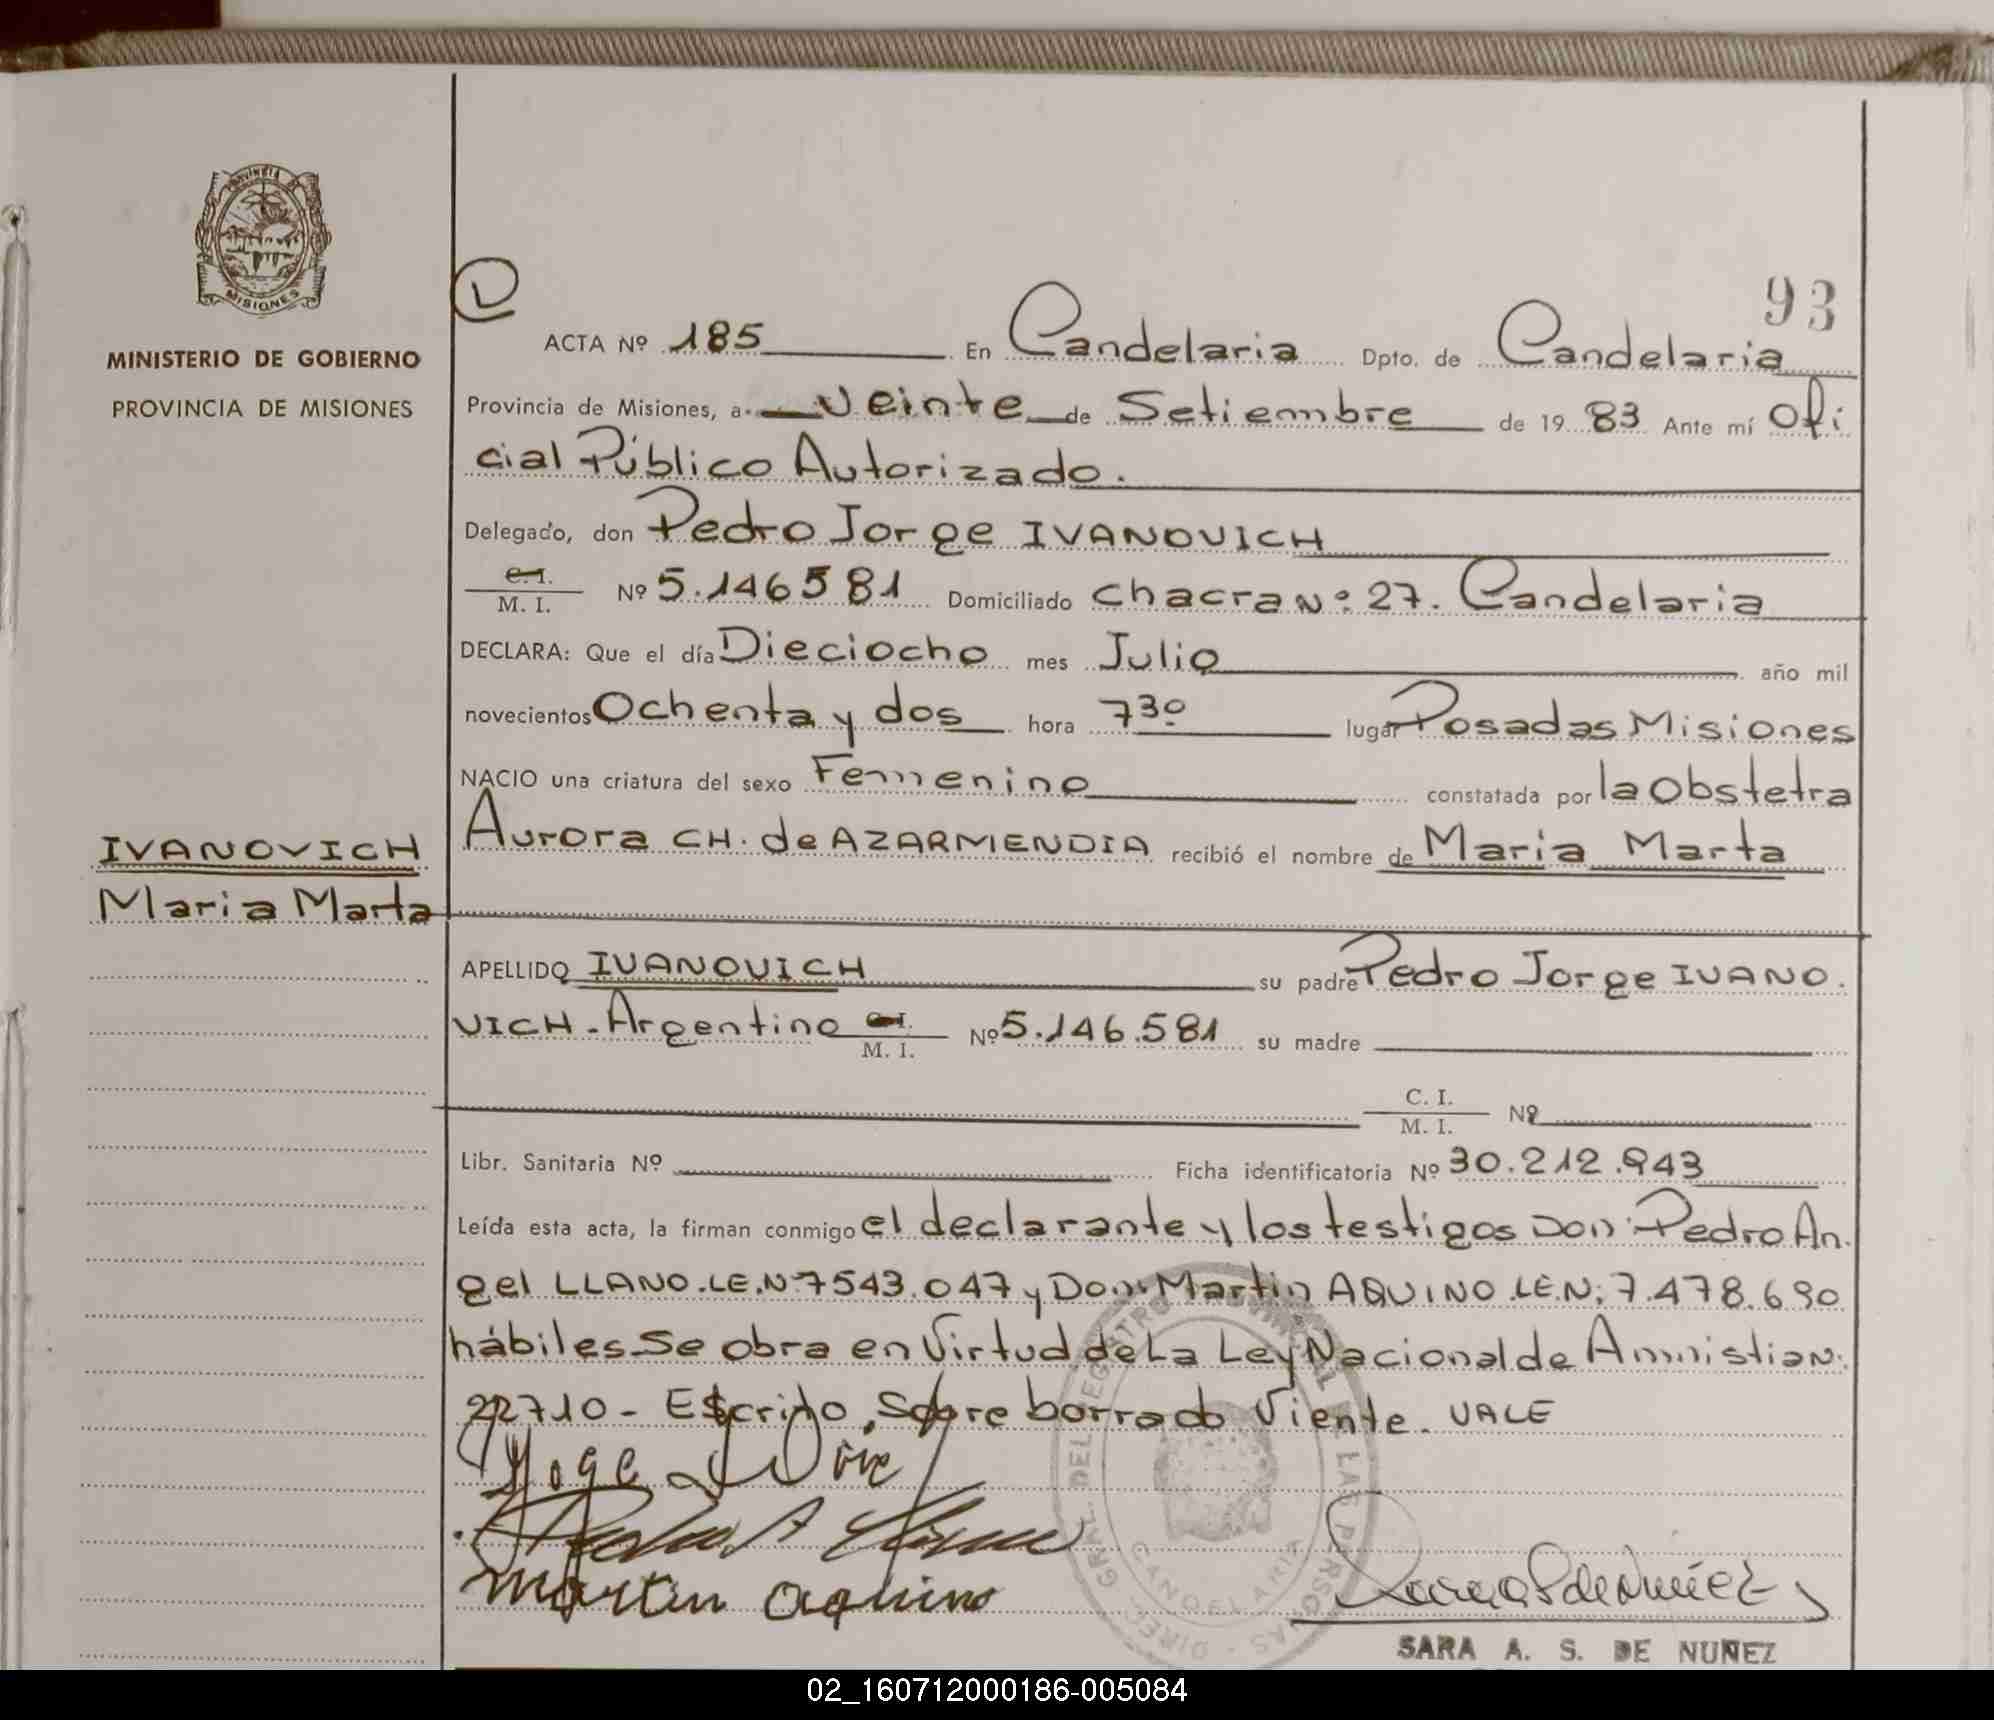 PROVINCIA DE
MISIONES
MINISTERIO DE GOBIERNO
PROVINCIA DE MISIONES
93
ACTA Nº 185 En Candelaria Dpto. de Candelaria
Provincia de Misiones, a veinte de Setiembre de 19 83 Ante mí Ofi
cial Público Autorizado.
Delegado, don Pedro Jorge IVANOVICH
C.I.
M. I. Nº 5.146581 Domiciliado Chacra Nº: 27. Candelaria
DECLARA: Que el día Dieciocho mes Julio año mil
novecientos Ochenta y dos hora 7 30 lugar Posadas Misiones
NACIO una criatura del sexo Femenino constatada por la Obstetra
Aurora CH. de AZARMENDIA recibió el nombre de Maria Marta
IVANOVICH
Maria Marta
APELLIDO IVANOVICH su padre Pedro Jorge IVANO.
VICH - Argentino C.I.
M. I. Nº 5.146.581 su madre
C. I.
M. I. Nº
Libr. Sanitaria Nº Ficha identificatoria Nº 30.212.943
Leída esta acta, la firman conmigo el declarante y los testigos Don: Pedro An.
gel LLANO. LE. Nº 7543.047 y Don: Martin AQUINO. LE. N: 7.478.690
hábiles Se obra en Virtud de La Ley Nacional de Amnistia N:
22710 - Escrito Sobre borrado Viente. VALE
Pedro A Llano
Martin Aquino
DIREC. GRAL. DEL REGISTRO PROVINCIAL DE LAS PERSONAS
CANDELARIA
SARA A. S. DE NUÑEZ
02_160712000186-005084